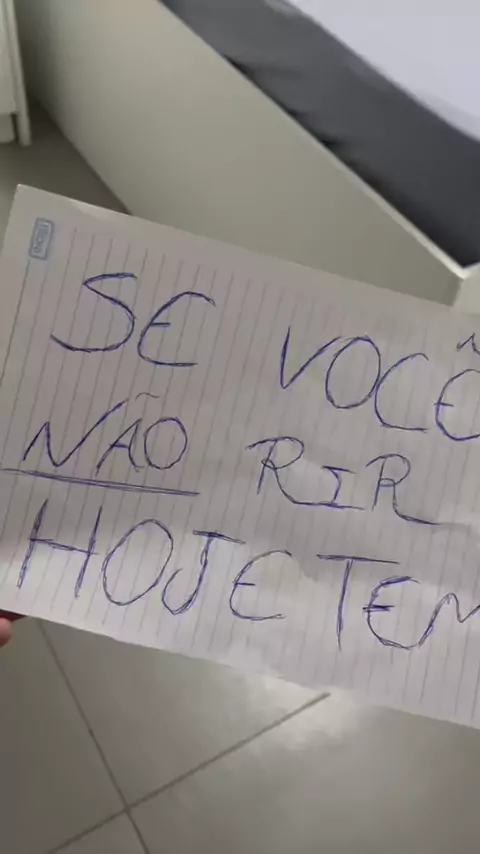 SE VOCÊ
NÃO RIR
HOJE TEM